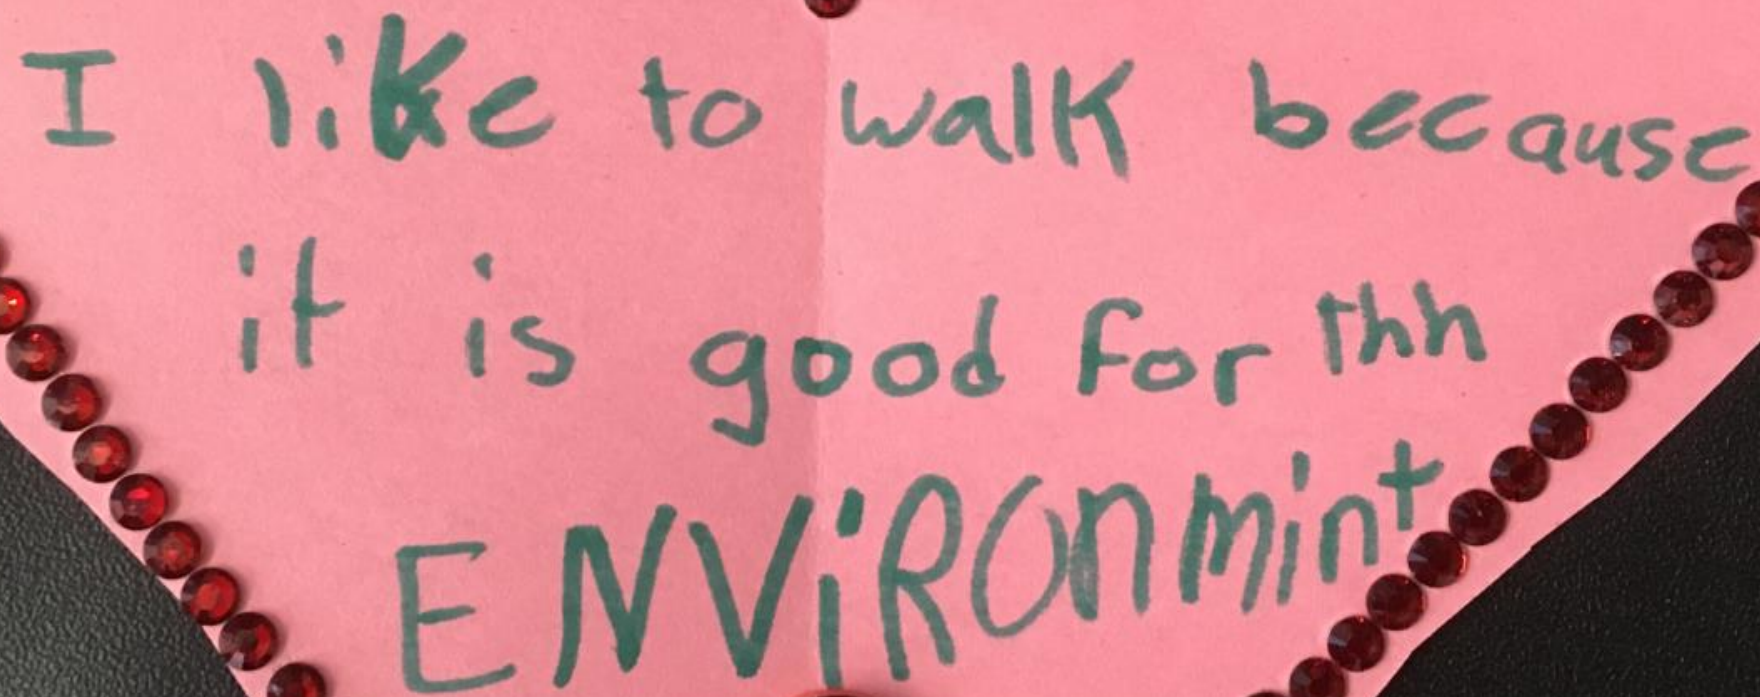 I like to walk because
it is good for thh
ENViRONmint